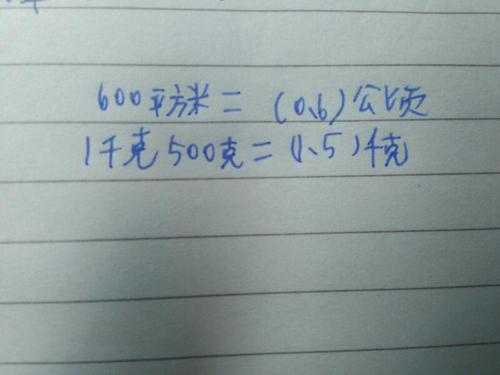 600平方米=(0.6)公顷
1千克500克=(1.5)千克